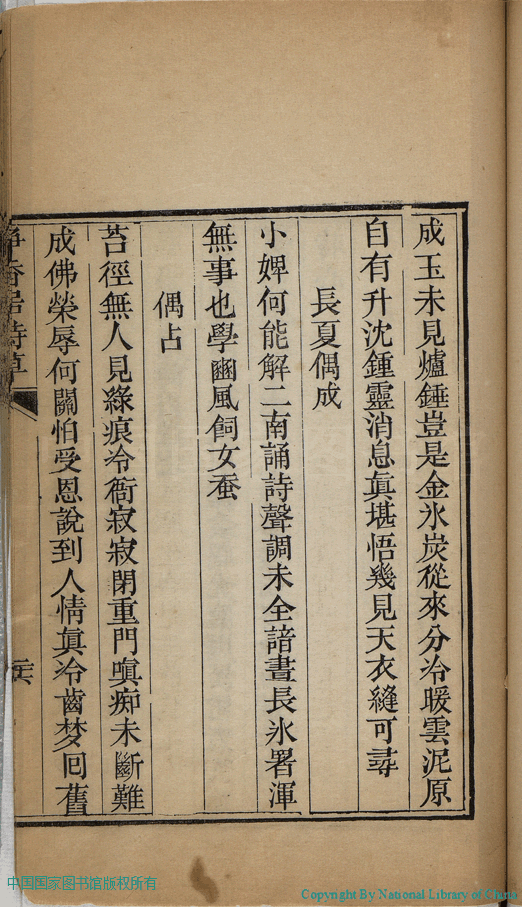 成玉未見爐錘豈是金氷炭從來分冷暖雲泥原
自有升沈鍾靈消息眞堪悟幾見天衣縫可尋
長夏偶成
小婢何能解二南誦詩聲調未全諳晝長氷署渾
無事也學豳風飼女蚕
偶占
苔徑無人見綠痕冷衙寂寂閉重門嗔痴未斷難
成佛榮辱何關怕受恩說到人情眞冷齒梦回舊
香居詩草
中国国家图书馆版权所有
Copyright By National Library of China